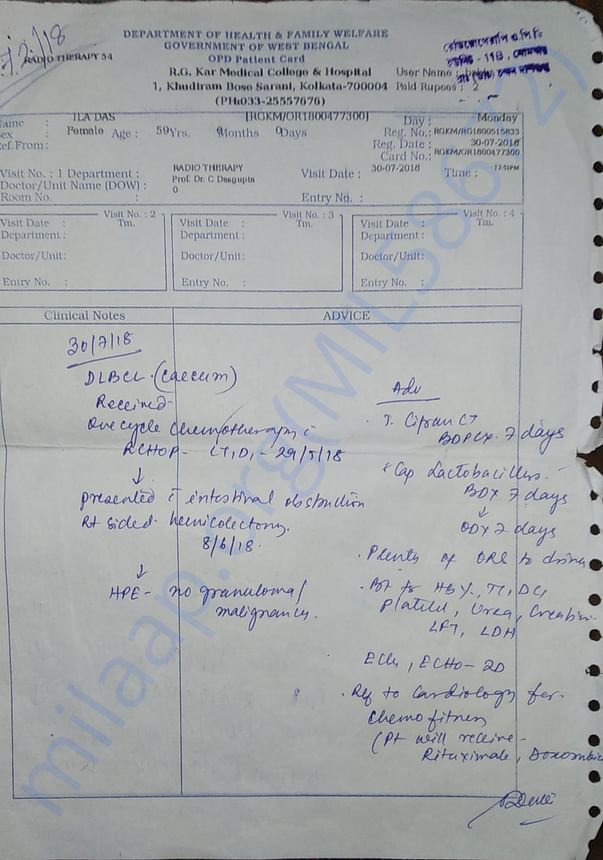 DEPARTMENT OF HEALTH & FAMILY WELFARE
GOVERNMENT OF WEST BENGAL
OPD Patient Card
RADIO THERAPY 34
R.G. Kar Medical College & Hospital
User Name :
1, Khudiram Bose Sarani, Kolkata-700004 Paid Rupees : 2
(PH:033-25557676)
Name : ILA DAS [RGKM/OR1800477300] Day : Monday
Sex : Female Age : 59 Yrs. 0 Months 0 Days Reg. No.: RGKM/RG1800515833
Ref.From : Reg. Date : 30-07-2018
Card No.: RGKM/OR1800477300
Visit No. : 1 Department : RADIO THERAPY Visit Date : 30-07-2018 Time :
Doctor/Unit Name (DOW) : Prof. Dr. C Dasgupta
Room No. : 0 Entry No. :
Visit No. : 2 Visit No. : 3 Visit No. : 4
Visit Date : Tm. Visit Date : Tm. Visit Date : Tm.
Department : Department : Department :
Doctor/Unit: Doctor/Unit: Doctor/Unit:
Entry No. : Entry No. : Entry No. :
Clinical Notes ADVICE
30/7/18
DLBCL. (Caecum)
Received
One cycle chemotherapy
RCHOP - C1, D1 - 29/5/18
↓
presented c̄ intestinal obstruction
Rt sided hemicolectomy.
8/6/18.
↓
HPE - no granuloma/
malignancy.
Adv
T. Cipran CT
7 days
Cap Lactobacillus.
BDX 7 days
↓
ODX 7 days
. Plenty of ORS to drink
. Bl for Hb%, TC, DC,
Platelet, Urea, Creatinine
LFT, LDH
ECG, ECHO-2D
. Ref to Cardiology for
chemo fitness
(Pt will receive -
milaap.org(MIL586672)